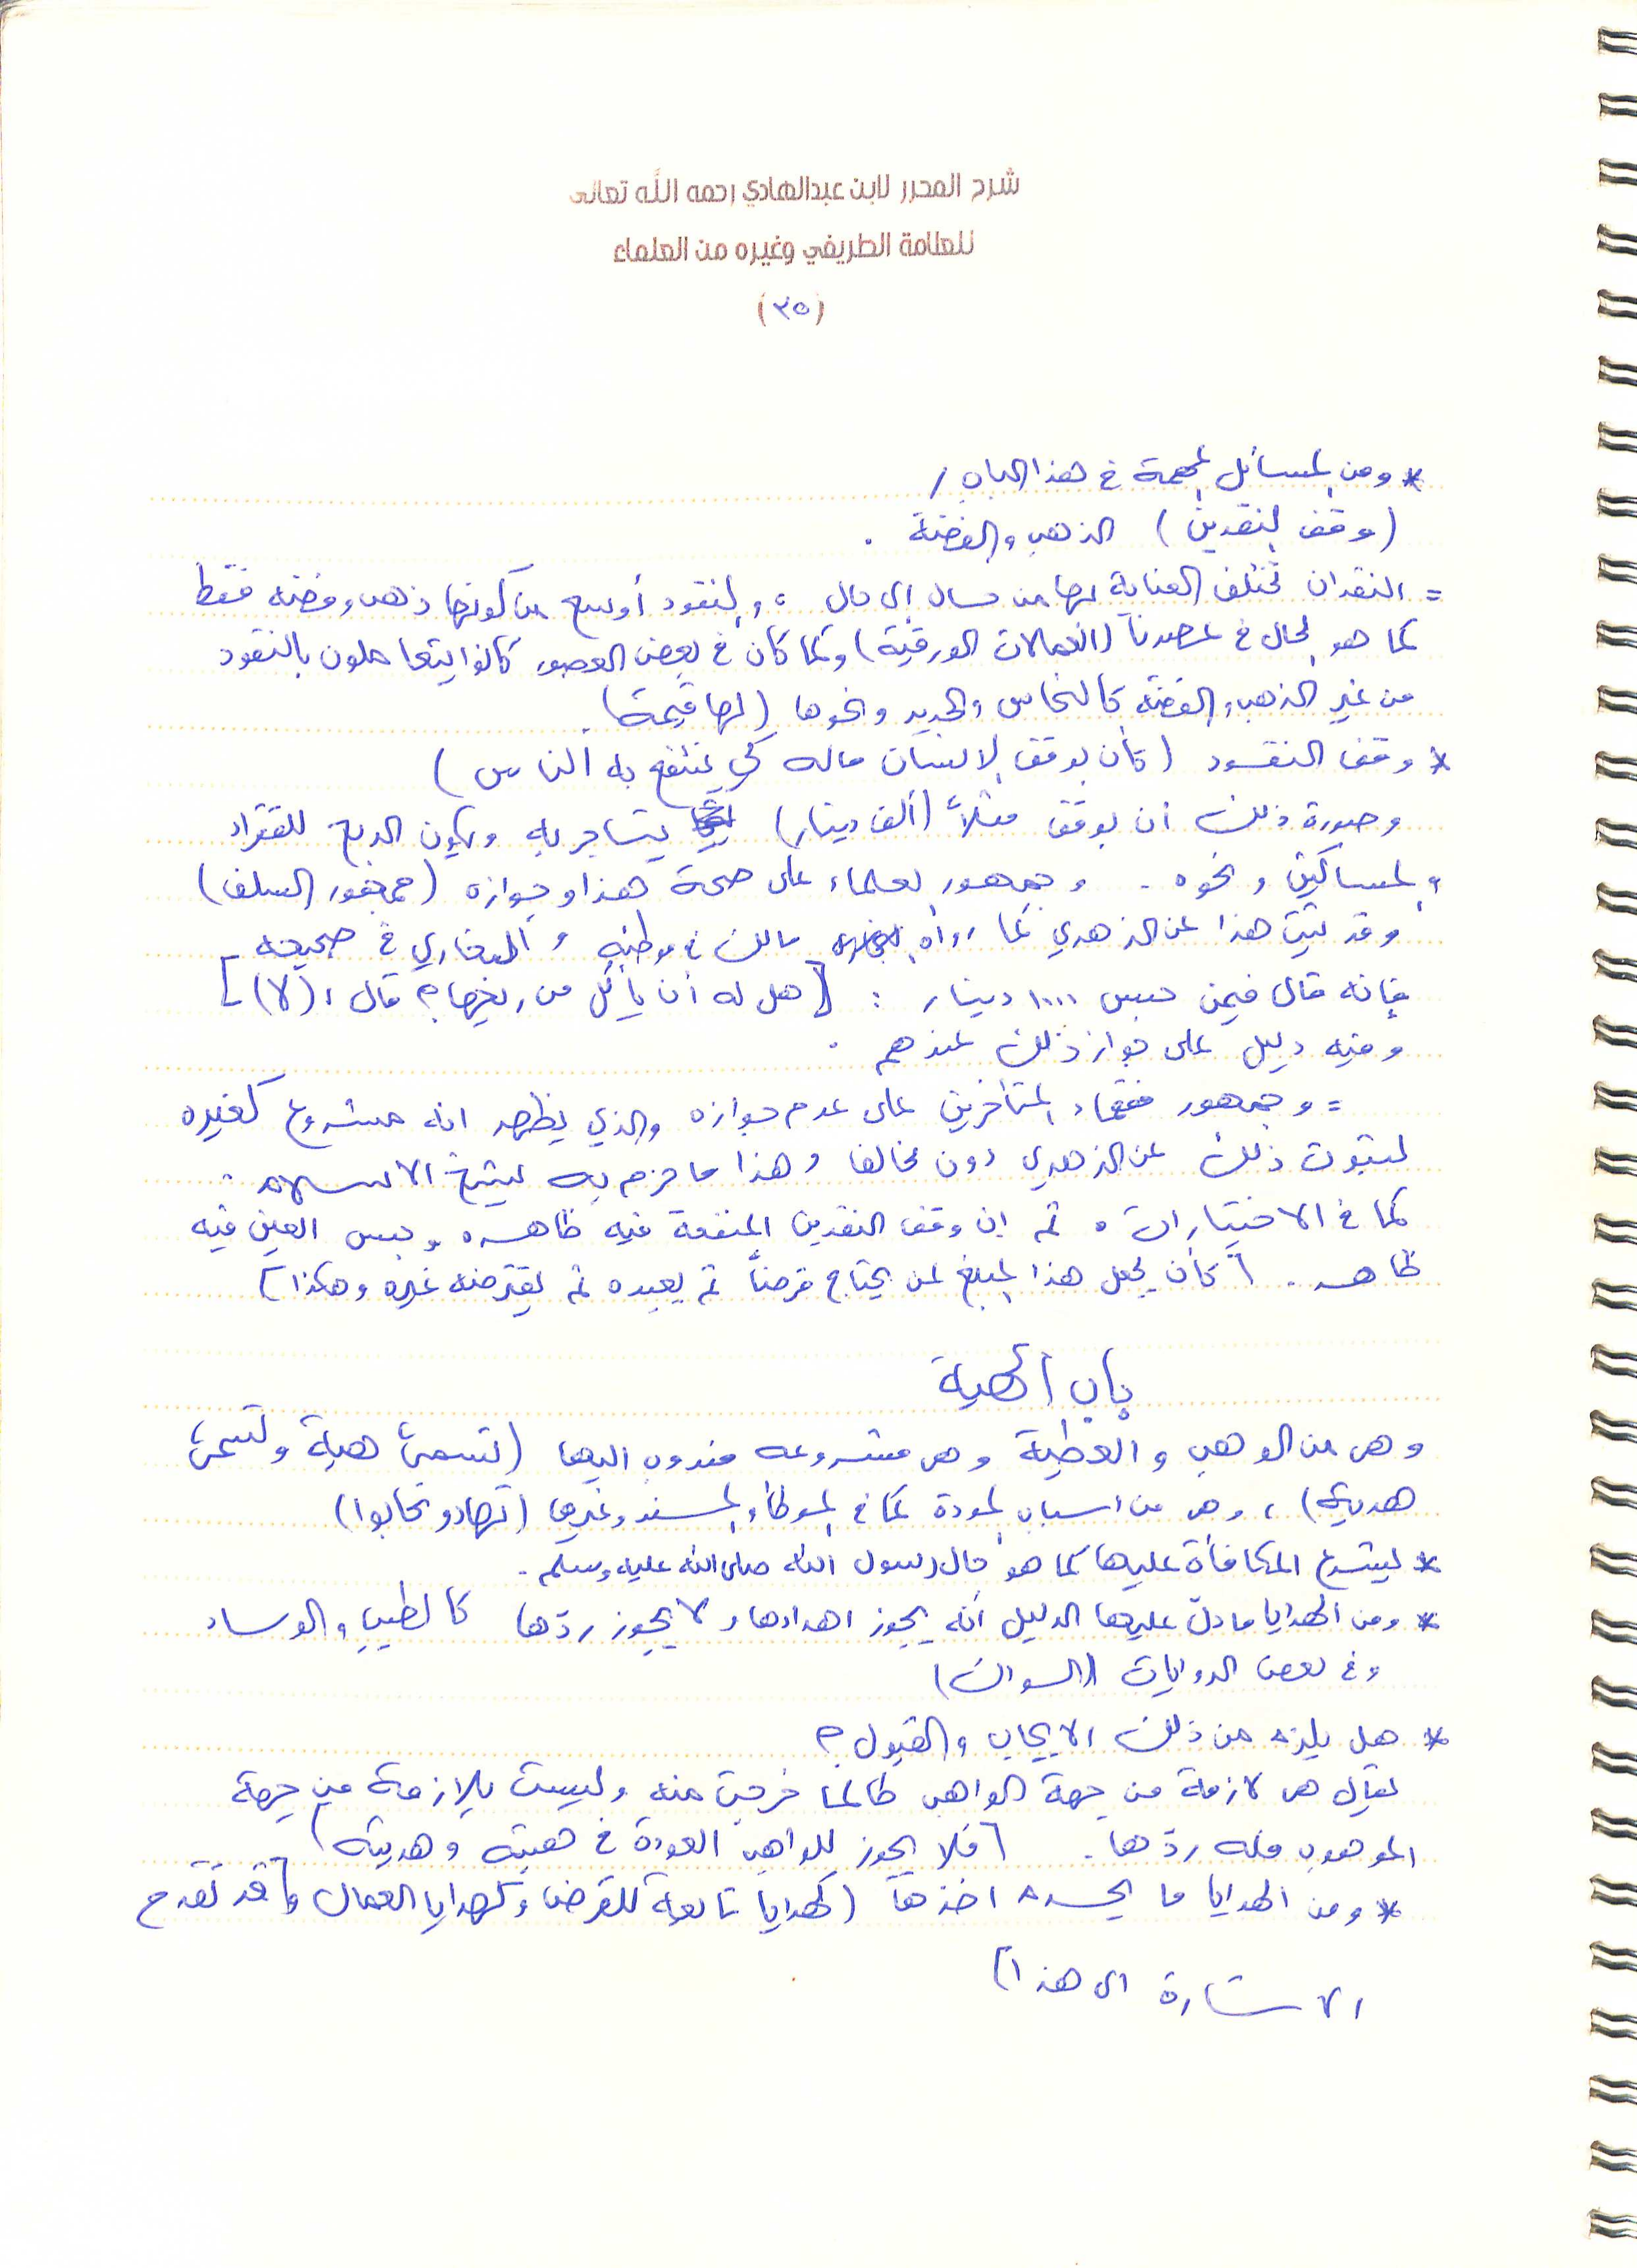 شرح المحرر لابن عبدالهادي رحمه الله تعالى
للعلامة الطريفي وغيره من العلماء
(٣٥)
* ومن المسائل المهمة في هذا الباب /
(وقف النقدين) الذهب والفضة .
= النقدان تختلف العناية بها من حال إلى حال ، والنقود أوسع من كونها ذهب وفضة فقط
كما هو الحال في عصرنا (العملات الورقية) وكما كان في بعض العصور كانوا يتعاملون بالنقود
من غير الذهب والفضة كالنحاس والحديد ونحوها (لها قيمة) .
* وقف النقود (كأن يوقف الإنسان ماله كي ينتفع به الناس)
وصورة ذلك أن يوقف مثلاً (ألف دينار) يتاجر به ويكون الربح للفقراء
والمساكين ونحوه . وجمهور العلماء على صحة هذا وجوازه (جمهور السلف)
وقد ثبت هذا عن الزهري كما رواه مالك في موطئه والبخاري في صحيحه
فإنه قال فيمن حبس ١٠٠٠ دينار : [هل له أن يأكل من ربحها؟ قال : (لا)]
وفيه دليل على جواز ذلك عندهم .
= وجمهور فقهاء المتأخرين على عدم جوازه والذي يظهر انه مشروع كغيره
لثبوت ذلك عن الزهري دون مخالف وهذا ما جزم به شيخ الاسلام
كما في الاختيارات . ثم ان وقف النقدين المنفعة فيه ظاهره وحبس العين فيه
ظاهر . [كأن يجعل هذا المبلغ لمن يحتاج قرضاً ثم يعيده ثم يقترضه غيره وهكذا]
باب الهبة
وهي من الوهب والعطية وهي مشروعه مندوب اليها (تسمى هبة وتسمى
هدية) ، وهي من اسباب المودة كما في الموطأ والمسند وغيرها (تهادو تحابوا)
* يشرع المكافأة عليها كما هو حال رسول الله صلى الله عليه وسلم .
* ومن الهدايا ما دلّ عليها الدليل أنه يجوز اهداءها ولا يجوز ردّها كالطيب والوساد
وفي بعض الروايات (السواك)
* هل يلزم من ذلك الايجاب والقبول ؟
يقال هي لازمة من جهة الواهب طالما خرجت منه وليست بلازمة من جهة
الموهوب فله ردّها . [فلا يجوز للواهب العودة في هبته وهديته]
* ومن الهدايا ما يحرم اخذها (كهدايا تابعة للقرض وكهدايا العمال وقد تقدم
الاشارة الى هذا)